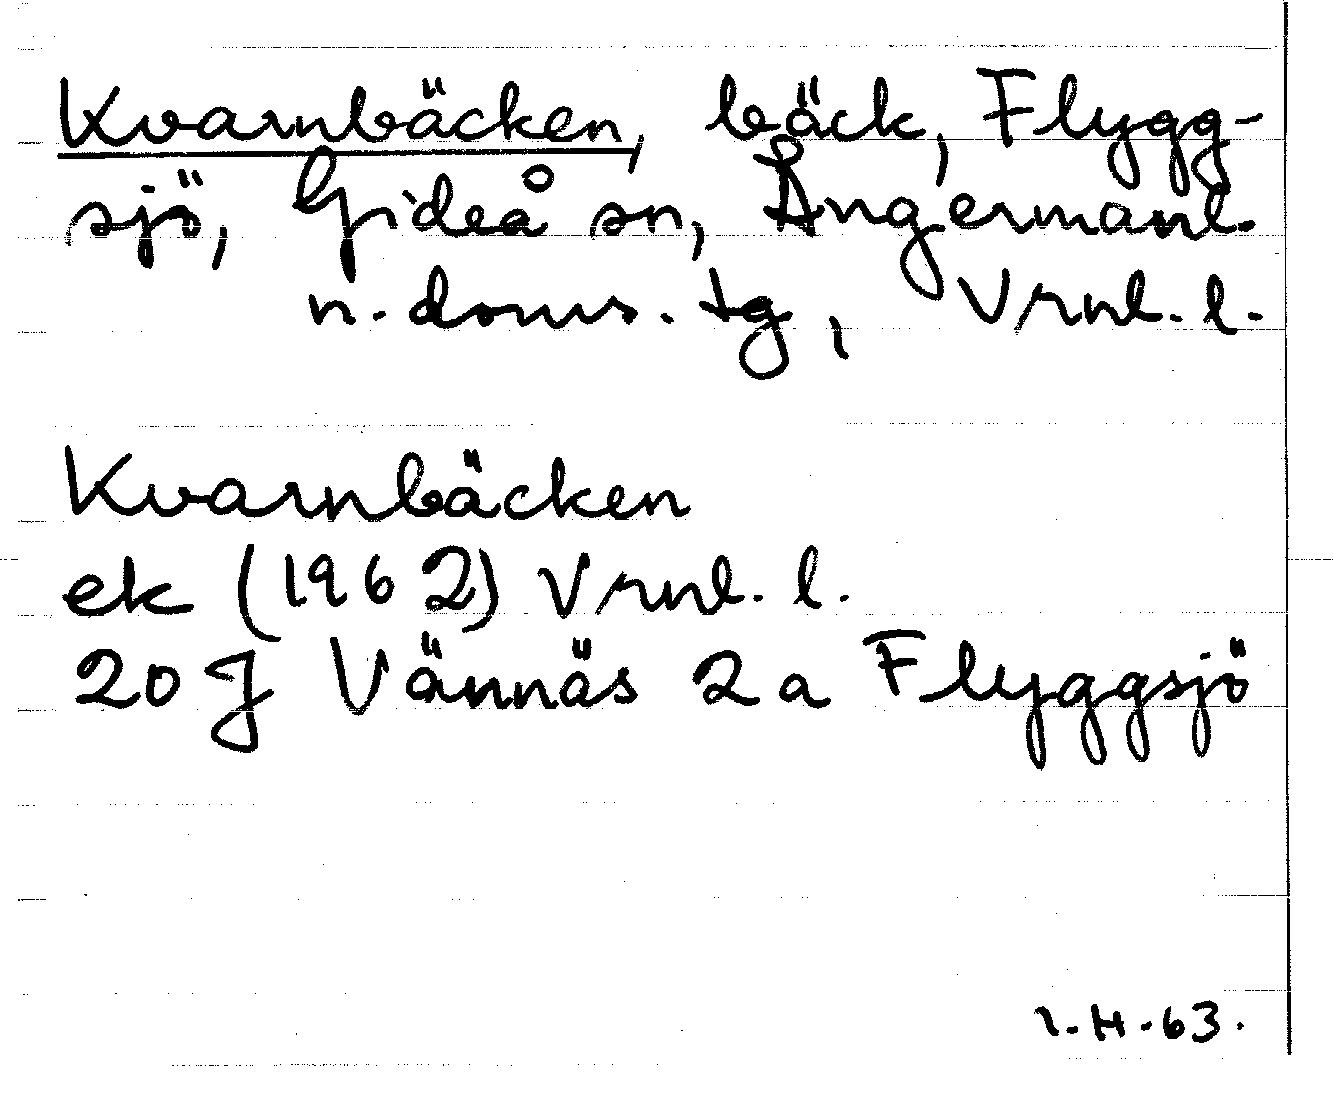 Kvarnbäcken, bäck, Flygg-
sjö, Gideå sn, Ångermanl.
n. doms. tg, Vrnl. l.
Kvarnbäcken
ek (1962) Vrnl. l.
20 J Vännäs 2 a Flyggsjö
1.H.63.